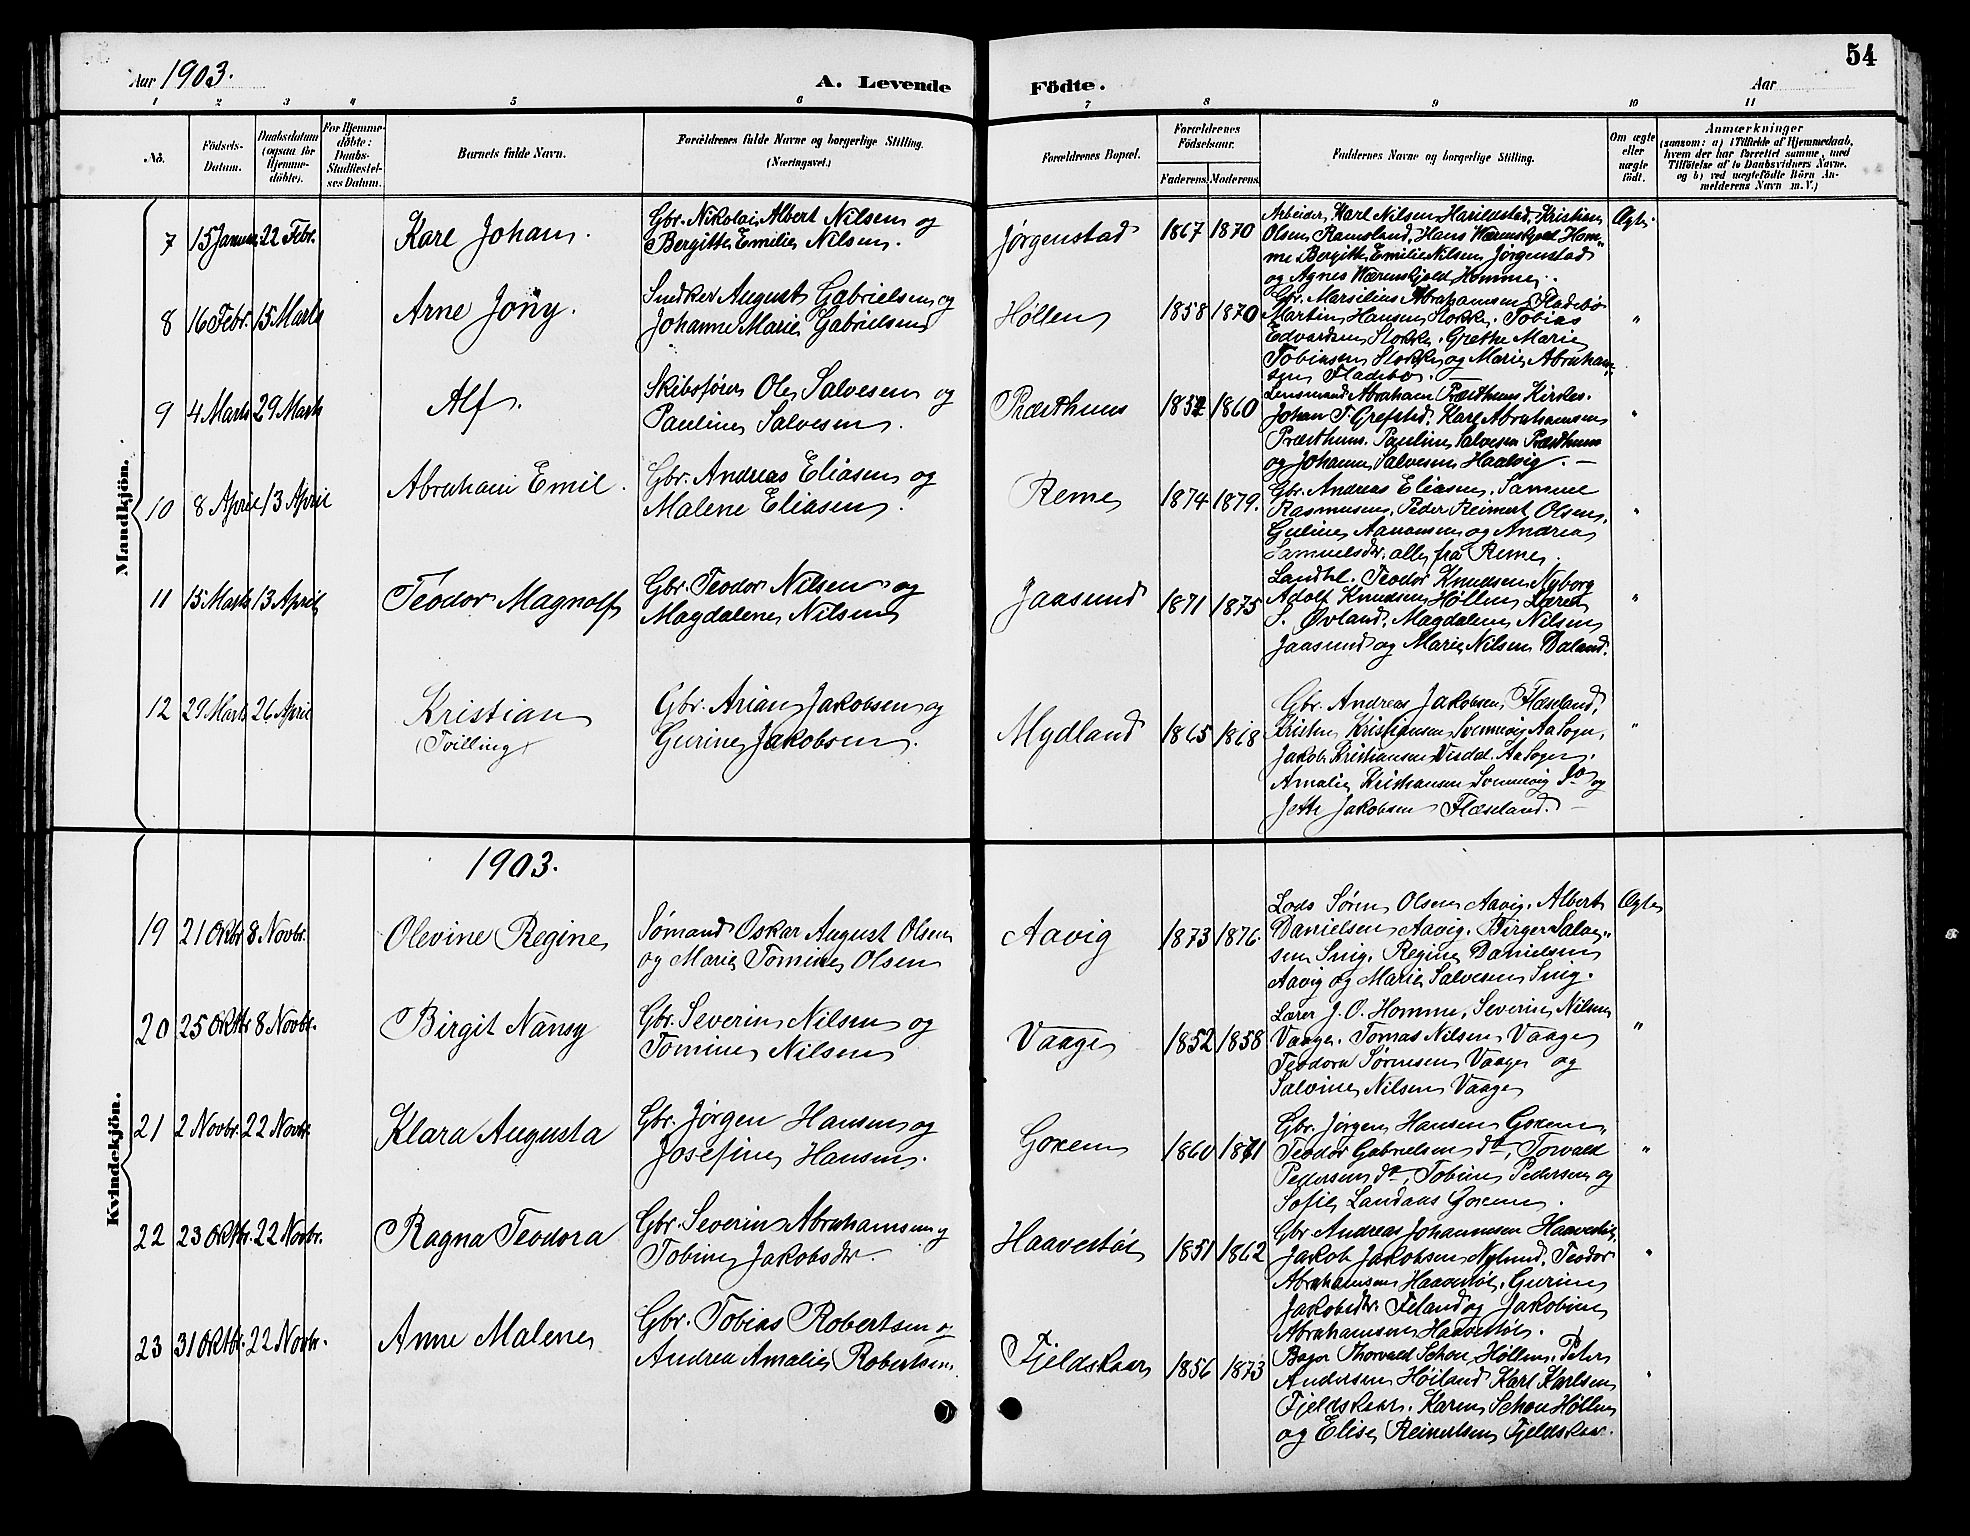 Aar 1903.
A. Levende Födte.
54
Aar
1 2 3 4 5 6 7 8 9 10 11
No.
Födsels-
Datum.
Daabsdatum
(ogsaa for
Hjemme-
döbte).
For Hjemme-
döbte:
Daabs-
Stadfæstel-
ses Datum.
Barnets fulde Navn.
Forældrenes fulde Navne og borgerlige Stilling.
(Næringsvei.)
Forældrenes Bopæl.
Forældrenes
Födselsaar.
Faderens. Moderens.
Faddernes Navne og borgerlige Stilling.
Om ægte
eller
uægte
födt.
Anmærkninger
(saasom: a) i Tilfælde af Hjemmedaab,
hvem der har forrettet samme, med
Tilföielse af to Daabsvidners Navne.
og b) ved uægtefödte Börn An-
melderens Navn m. V.)
Mandkjön.
7 15 Januar 22 Febr.
Karl Johan.
Gbr. Nikolai Albert Nilsen og
Bergitte Emilie Nilsen.
Jørgenstad
1867 1870
Arbeider Karl Nilsen Harildstad, Kristian
Olsen Ramsland, Hans Wærenskjold Hom-
me Bergitte Emilie Nilsen Jørgenstad
og Agnes Wærenskjold Homme.
Ægte
8 16 Febr. 15 Marts
Arne Jony.
Snedker August Gabrielsen og
Johanne Marie Gabrielsen
Høllen
1858 1870
Gbr. Marsilius Abrahamsen Fladebø
Martin Hansen Stokke. Tobias
Edvardsen Stokke. Grethe Marie
Tobiasen Stokke og Marie Abraham-
sen Fladebø.
"
9 4 Marts 29 Marts
Alf.
Skibsfører Ole Salvesen og
Pauline Salvesen.
Præsthuus
1852 1860
Lensmand Abraham Præsthuus Kirkes.
Johan T. Grefstad. Karl Abrahamsen
Præsthuus. Pauline Salvesen Præsthuus
og Johanne Salvesen Haalvig.
"
10 8 April 13 April
Abraham Emil.
Gbr. Andreas Eliasen og
Malene Eliasen.
Reme
1874 1879.
Gbr. Andreas Eliasen. Samuel
Rasmussen, Peder Reinert Olsen,
Guline Aanonsen og Andrea
Samuelsdr. alle fra Reme.
"
11 15 Marts 13 April
Teodor Magnolf
Gbr. Teodor Nilsen og
Magdalene Nilsen
Jaasund
1871 1875
Landhl. Teodor Knudsen Nyborg
Adolf Knudsen Høllen Lærer
S. Øvland. Magdalene Nilsen
Jaasund og Marie Nilsen Daland.
"
12 29 Marts 26 April
Kristian
(Tvilling)
Gbr. Arian Jakobsen og
Gurine Jakobsen.
Mydland
1865 1868
Gbr. Andreas Jakobsen Flæseland,
Kristen Kristiansen Svennevig Aa Sogn,
Jakob Kristiansen Visdal. Aa Sogn.
Amalie Kristiansen Svennevig Do og
Jette Jakobsen Flæseland.
"
Kvindekjön.
1903.
19 21 Oktbr. 8 Novbr.
Olevine Regine
Sømand Oskar August Olsen
og Marie Tomine Olsen
Aavig
1873 1876.
Lods Søren Olsen Aavig. Albert
Danielsen Aavig. Birger Salve-
sen Snig. Regine Danielsen
Aavig og Marie Salvesen Snig.
Ægte
20 25 Oktbr 8 Novbr.
Birgit Nansy
Gbr. Severin Nilsen og
Tomine Nilsen
Vaage
1852 1858
Lærer J. O. Homme, Severin Nilsen
Vaage. Tomas Nilsen Vaage
Teodora Sørensen Vaage og
Salvine Nilsen Vaage
"
21 2 Novbr. 22 Novbr.
Klara Augusta
Gbr. Jørgen Hansen og
Josefine Hansen.
Goxem
1860 1871
Gbr. Jørgen Hansen Goxem,
Teodor Gabrielsen do, Torvald
Pedersen do, Tobine Pedersen og
Sofie Landaas Goxem.
"
22 23 Oktbr. 22 Novbr.
Ragna Teodora
Gbr. Severin Abrahamsen og
Tobine Jakobsdr.
Haavestøl
1851 1862
Gbr Andreas Johannesen Haavestøl,
Jakob Jakobsen Nylund, Teodor
Abrahamsen Haavestøl, Gurine
Jakobsdr. Feland og Jakobine
Abrahamsen Haavestøl.
"
23 31 Oktbr. 22 Novbr.
Anne Malene
Gbr. Tobias Robertsen og
Andrea Amalie Robertsen.
Fjeldskaar
1856 1873
Bager Thorvald Schou Høllen. Peter
Andersen Høiland Karl Karlsen
Fjeldskaar. Karen Schou Høllen
og Elise Reinertsen Fjeldskaar.
"